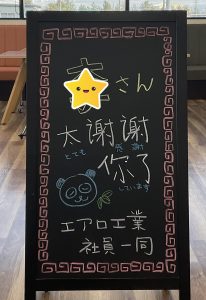 さん
大謝謝
とても 感謝
你了
しています
エアロ工業
社員一同